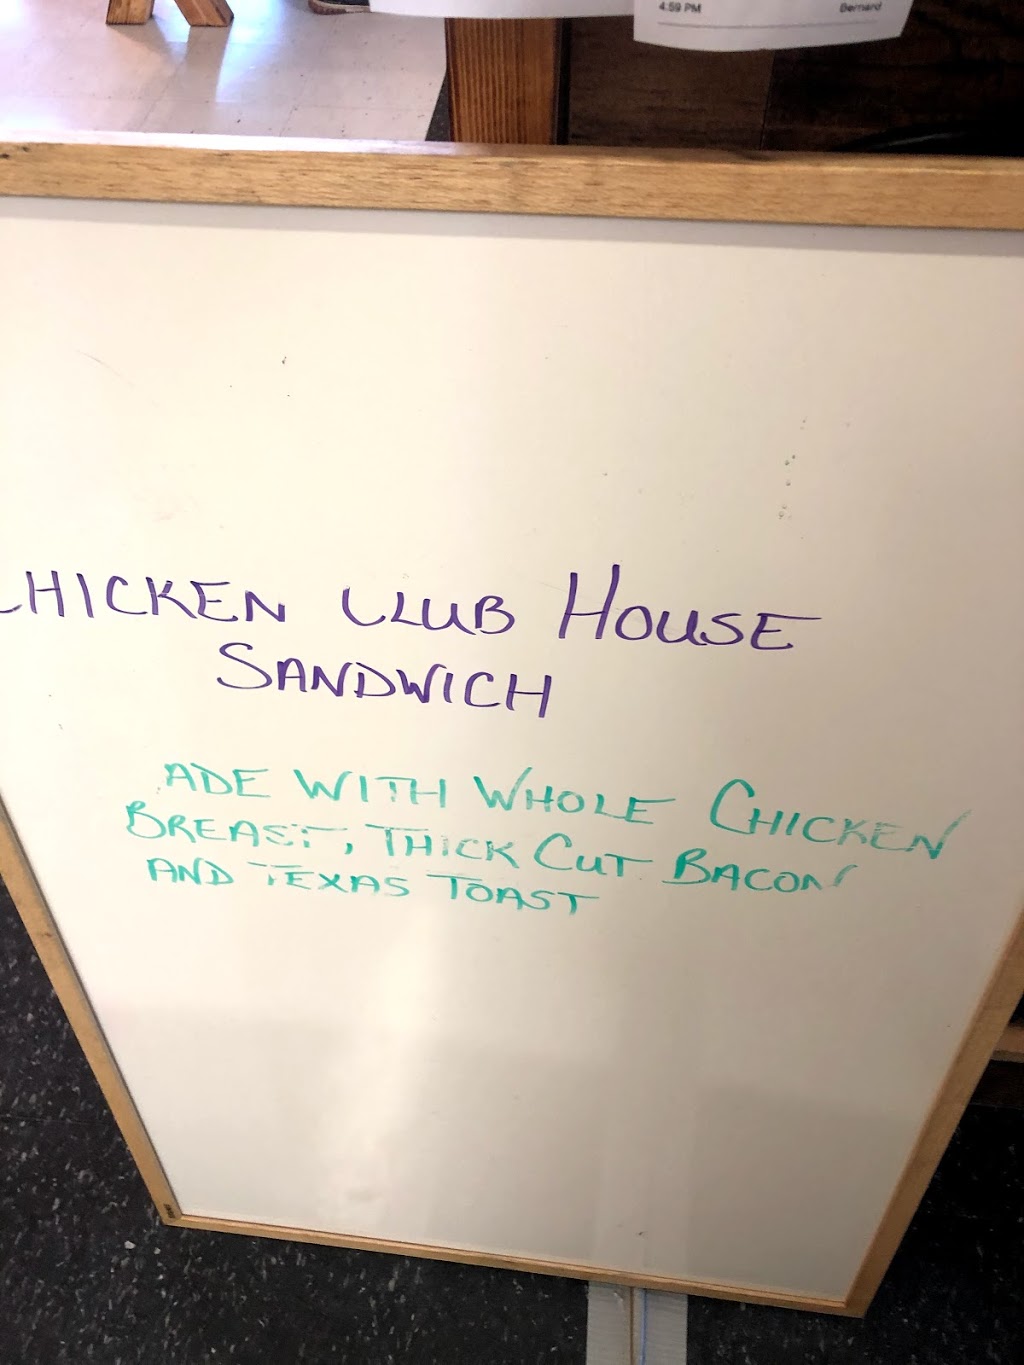 4:59 PM Bernard
CHICKEN CLUB HOUSE
SANDWICH
ADE WITH WHOLE CHICKEN
BREAST, THICK CUT BACON
AND TEXAS TOAST